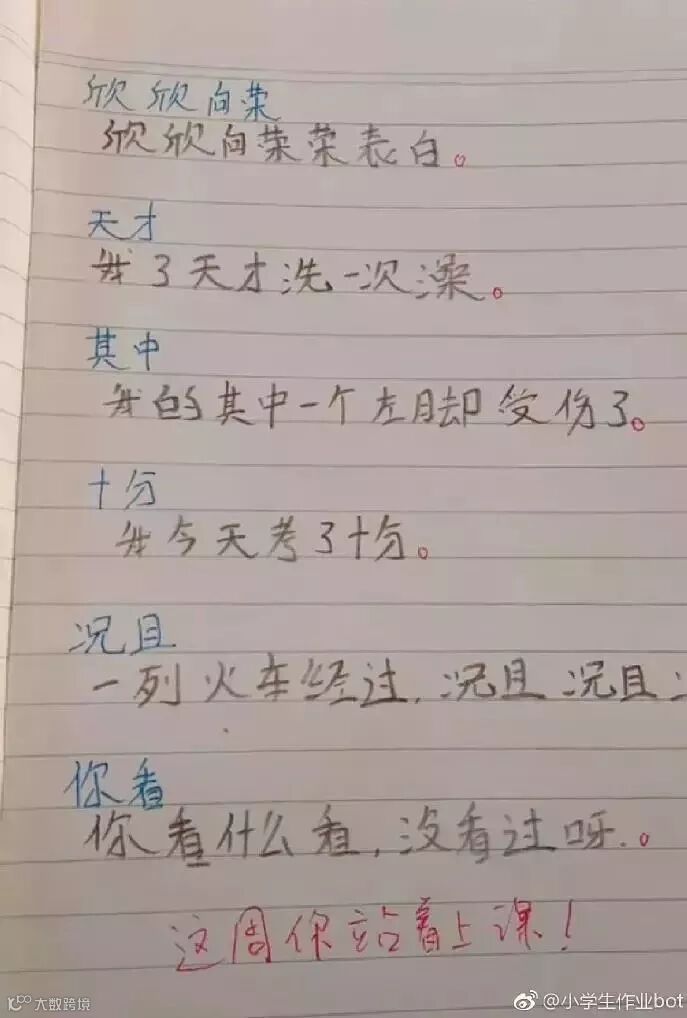 欣欣向荣
欣欣向荣荣表白。
天才
我3天才洗一次澡。
其中
我的其中一个左脚受伤了。
十分
我今天考了十分。
况且
一列火车经过,况且况且
你看
你看什么看,没看过呀。
这周你站着上课!
大数跨境
@小学生作业bot